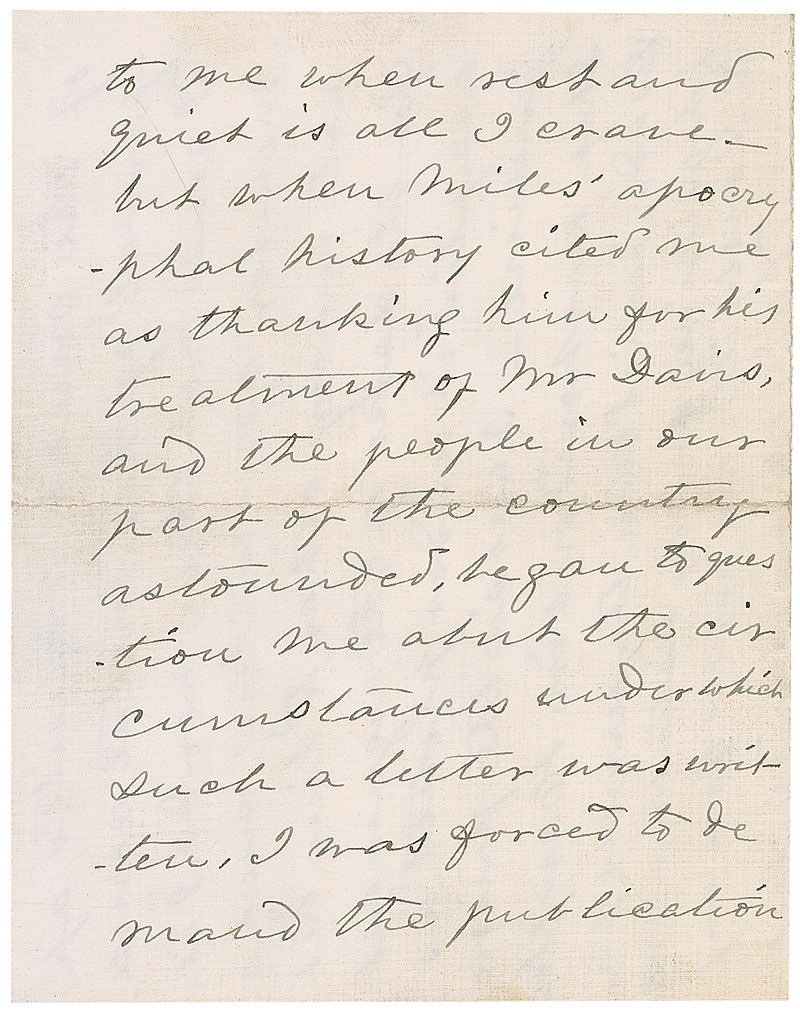 to me when rest and
quiet is all I crave_
but when Miles' apocry
-phal history cited me
as thanking him for his
treatment of Mr Davis,
and the people in our
part of the country
astounded, began to ques
-tion me abut the cir
cumstances under which
such a letter was writ-
-ten, I was forced to de
mand the publication